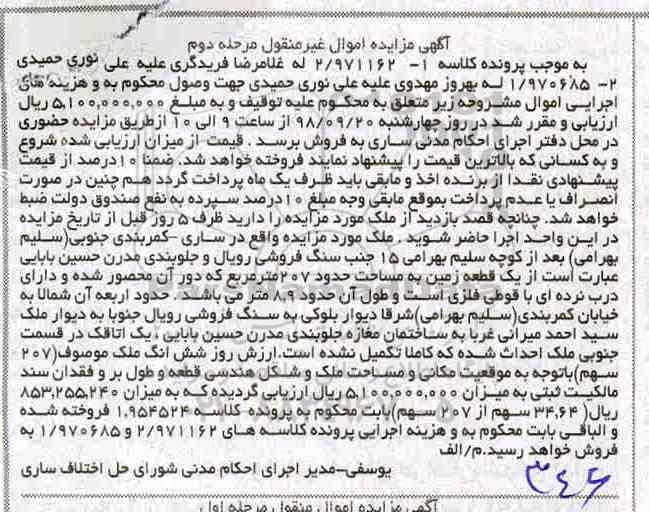 آگهی مزایده اموال غیرمنقول مرحله دوم
به موجب پرونده کلاسه ۱- ۲/۹۷۱۱۶۲ له غلامرضا فریدگری علیه علی نوری حمیدی
۲- ۱/۹۷۰۶۸۵ لـه بهروز مهدوی علیه علی نوری حمیدی جهت وصول محکوم به و هزینه های
اجرایی اموال مشروحه زیر متعلق به محکوم علیه توقیف و به مبلغ ۵,۱۰۰,۰۰۰,۰۰۰ ریال
ارزیابی و مقرر شد در روز چهارشنبه ۹۸/۰۹/۲۰ از ساعت ۹ الی ۱۰ ازطریق مزایده حضوری
در محل دفتر اجرای احکام مدنی ساری به فروش برسد . قیمت از میزان ارزیابی شده شروع
و به کسانی که بالاترین قیمت را پیشنهاد نمایند فروخته خواهد شد. ضمنا ۱۰درصد از قیمت
پیشنهادی نقدا از برنده اخذ و مابقی باید ظرف یک ماه پرداخت گردد هم چنین در صورت
انصراف یا عدم پرداخت بموقع مابقی وجه مبلغ ۱۰درصد سپرده به نفع صندوق دولت ضبط
خواهد شد. چنانچه قصد بازدید از ملک مورد مزایده را دارید ظرف ۵ روز قبل از تاریخ مزایده
در این واحد اجرا حاضر شوید . ملک مورد مزایده واقع در ساری -کمربندی جنوبی(سلیم
بهرامی) بعد از کوچه سلیم بهرامی ۱۵ جنب سنگ فروشی رویال و جلوبندی مدرن حسین بابایی
عبارت است از یک قطعه زمین به مساحت حدود ۲۰۷مترمربع که دور آن محصور شده و دارای
درب نرده ای با قوطی فلزی است و طول آن حدود ۸,۹ متر می باشند. حدود اربعه آن شمالا به
خیابان کمربندی(سلیم بهرامی)شرقا دیوار بلوکی به سنگ فروشی رویال جنوبا به دیوار ملک
سید احمد میرانی غربا به ساختمان مغازه جلوبندی مدرن حسین بابایی ، یک اتاقک در قسمت
جنوبی ملک احداث شده که کاملا تکمیل نشده است.ارزش روز شش انگ ملک موصوف(۲۰۷
سهم)باتوجه به موقعیت مکانی و مساحت ملک و شکل هندسی قطعه و طول بر و فقدان سند
مالکیت ثبتی به میزان ۵,۱۰۰,۰۰۰,۰۰۰ ریال ارزیابی گردیده کـه به میزان ۸۵۳,۲۵۵,۲۴۰
ریال( ۳۴,۶۴ سهم از ۲۰۷ سهم)بابت محکوم به پرونده کلاسه ۱,۹۵۴۵۲۴ فروخته شده
و الباقی بابت محکوم به و هزینه اجرایی پرونده کلاسه های ۲/۹۷۱۱۶۲ و ۱/۹۷۰۶۸۵ به
فروش خواهد رسید.م/الف
یوسفی-مدیر اجرای احکام مدنی شورای حل اختلاف ساری
۳۴۶
آگهی مزایده اموال منقول مرحله اول